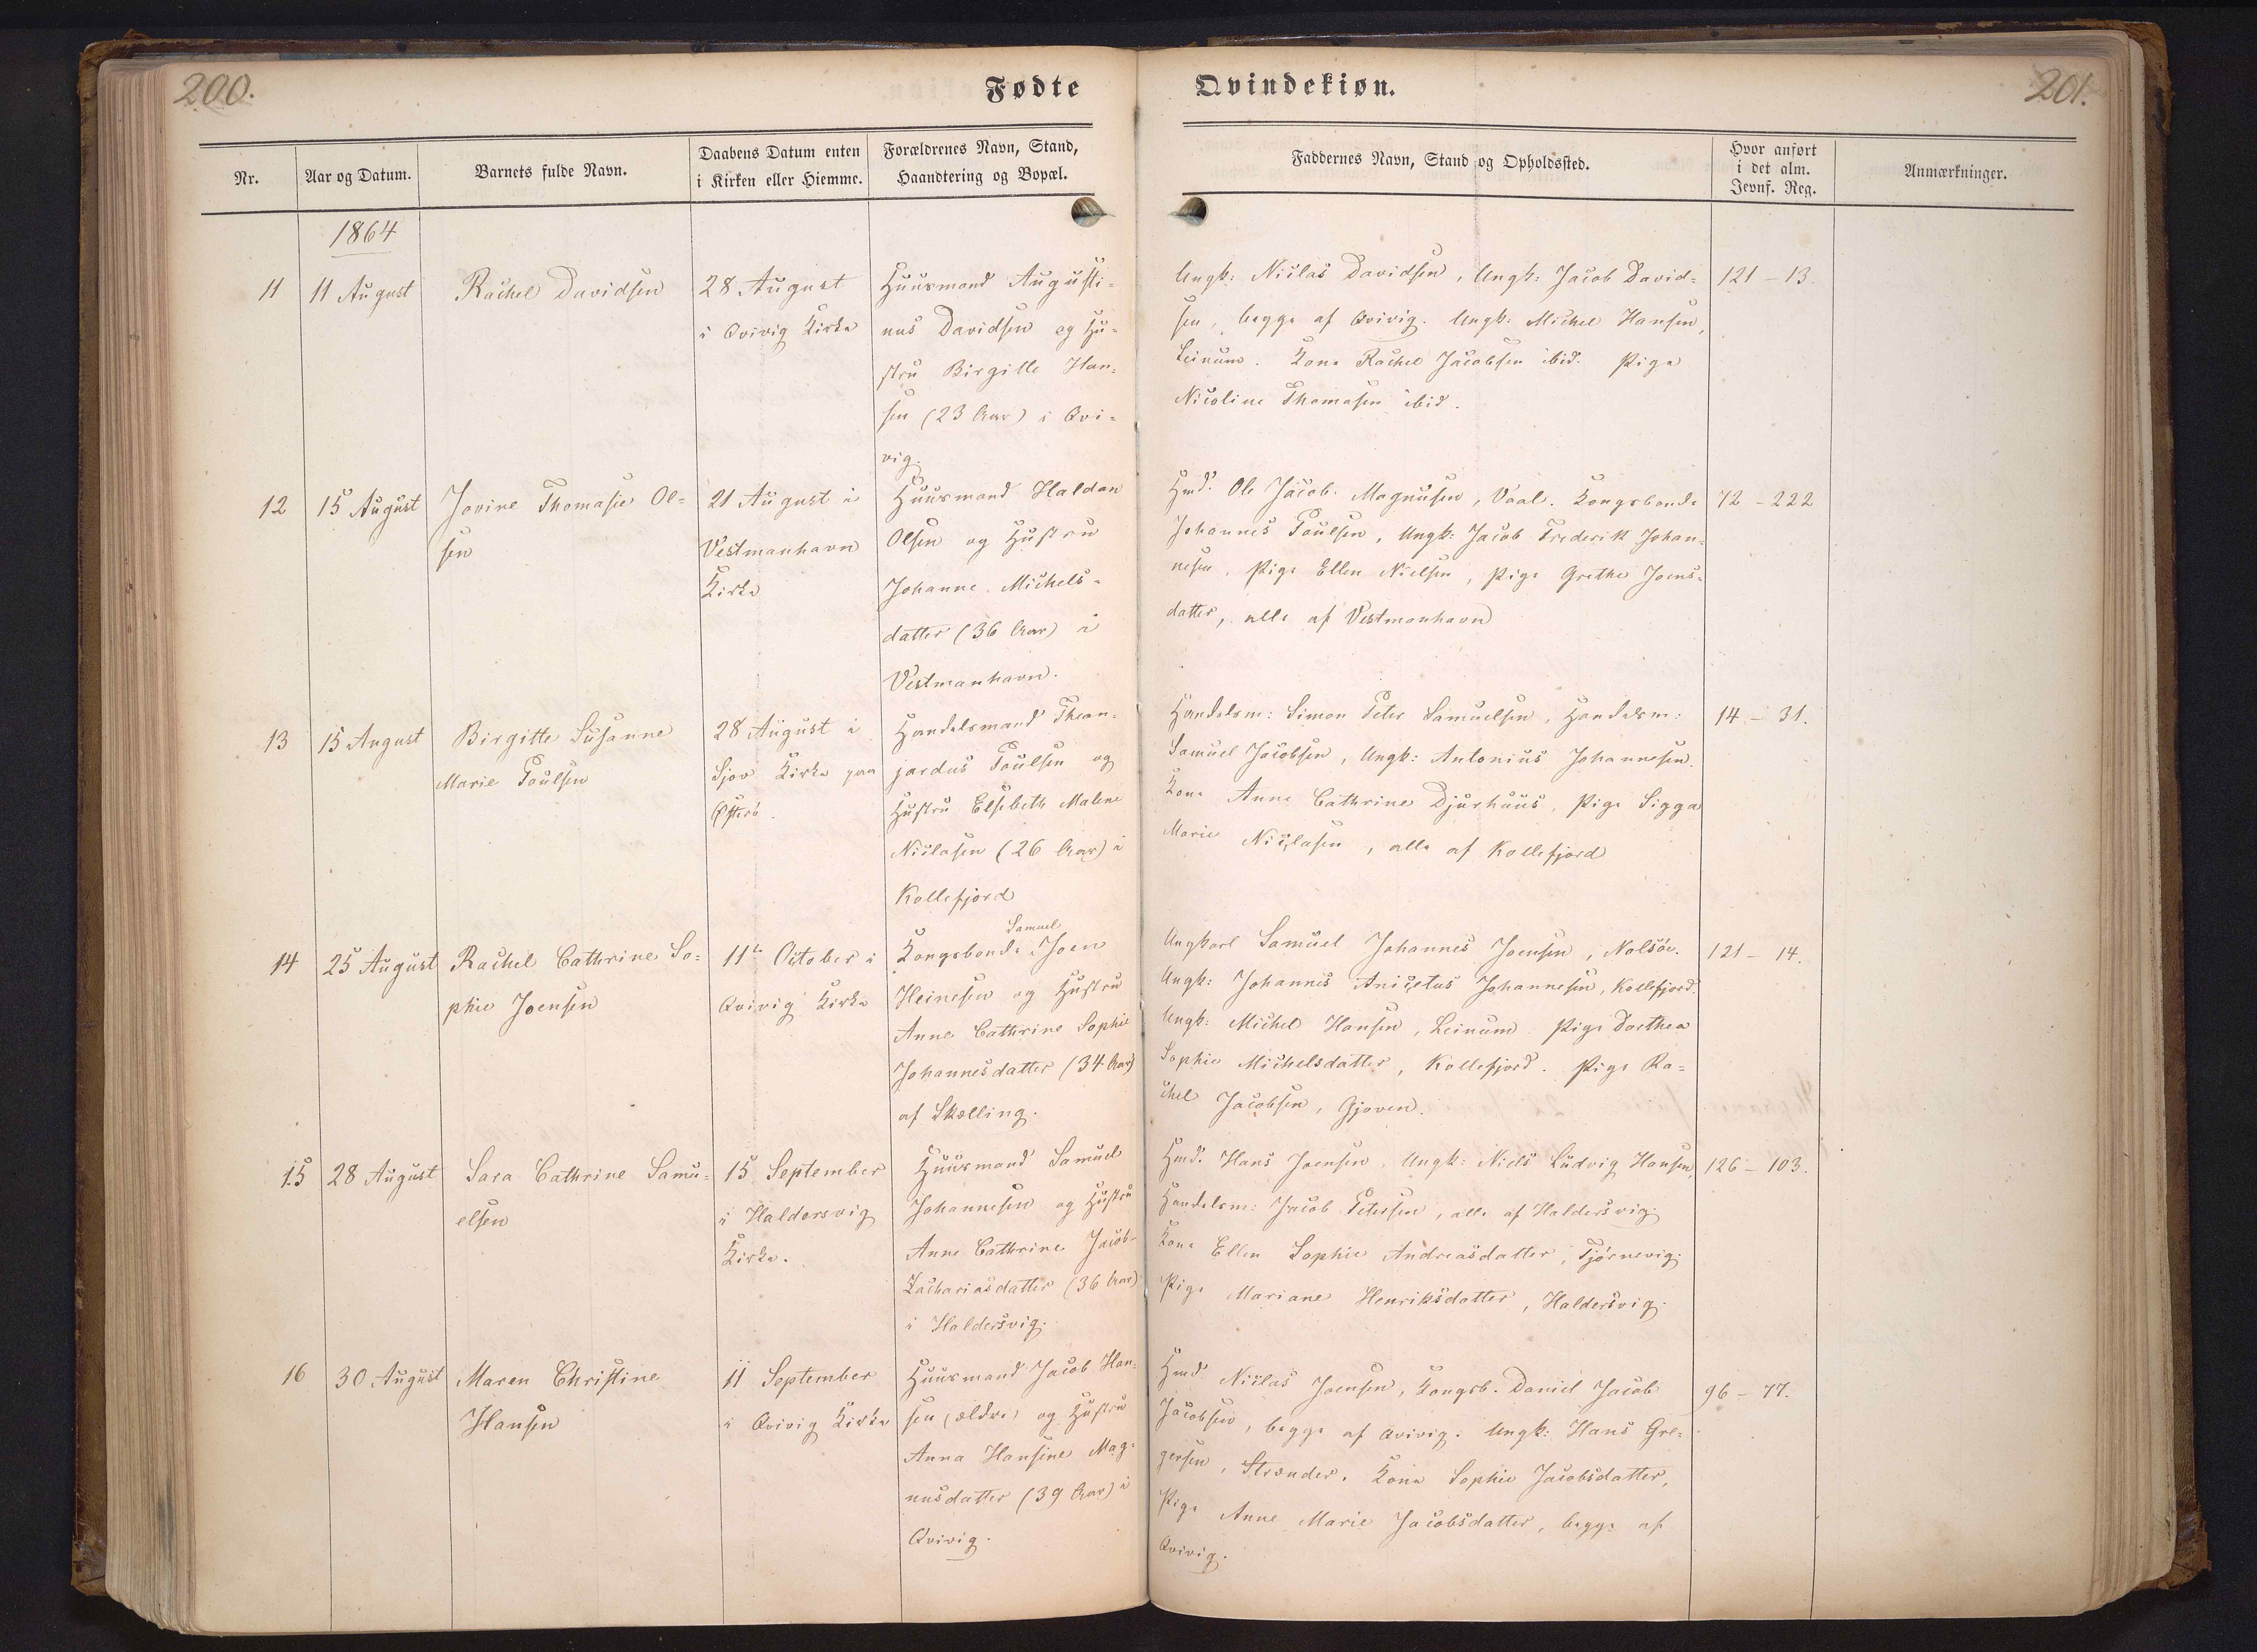 200.
Fødte
Nr.
Aar og Datum.
Barnets fulde Navn.
Daabens Datum enten
i Kirken eller Hiemme.
Forældrenes Navn, Stand,
Haandtering og Bopæl.
1864
11
11 August
Rachel Davidsen
28 August
i Qvivig Kirke
Huusmand Augusti-
nus Davidsen og Hu-
stru Birgitte Han-
sen (23 Aar) i Qvi-
vig.
12
15 August
Jovine Thomasie Ol-
sen
21 August i
Vestmanhavn
Kirke
Huusmand Haldan
Olsen og Hustru
Johanne Michels-
datter (36 Aar) i
Vestmanhavn.
13
15 August
Birgitte Susanne
Marie Poulsen
28 August i
Sjov Kirke paa
Østerö.
Handelsmand Thean-
jardus Poulsen og
Hustru Elsebeth Malene
Niclasen (26 Aar) i
Kollefjord
14
25 August
Rachel Cathrine So-
phie Joensen
11te October i
Qvivig Kirke
Samuel
Kongsbonde Joen
Heinesen og Hustru
Anne Cathrine Sophie
Johannesdatter (34 Aar)
af Skælling.
15
28 August
Sara Cathrine Samu-
elsen
15 September
i Haldersvig
Kirke.
Huusmand Samuel
Johannesen og Hustru
Anne Cathrine Jacob-
Zachariasdatter (36 Aar)
i Haldersvig.
16
30 August
Maren Christine
Hansen
11 September
i Qvivig Kirke
Huusmand Jacob Han-
sen (ældre) og Hustru
Anna Hansine Mag-
nusdatter (39 Aar) i
Qvivig.
Qvindekiøn.
201.
Faddernes Navn, Stand og Opholdssted.
Hvor anført
i det alm.
Jevnf. Reg.
Anmærkninger.
Ungk: Niclas Davidsen, Ungk: Jacob David-
sen, begge af Qvivig. Ungk: Michel Hansen,
Leinum. Kone Rachel Jacobsen ibid. Pige
Nicoline Thomasen ibid.
121 - 13.
Hmd. Ole Jacob Magnusen, Vaal. Kongsbonde
Johannes Poulsen, Ungk: Jacob Frederik Johan-
nesen, Pige Ellen Nielsen, Pige Grethe Joens-
datter, alle af Vestmanhavn
72 - 222
Handelsm: Simon Peter Samuelsen, Handelsm:
Samuel Jacobsen, Ungk: Antonius Johannesen.
Kone Anne Cathrine Djurhuus, Pige Sigga
Marie Niclasen, alle af Kollefjord
14 - 31.
Ungkarl Samuel Johannes Joensen, Nolsöe.
Ungk: Johannes Anicetus Johannesen, Kollefjord.
Ungk: Michel Hansen, Leinum. Pige Dorthea
Sophie Michelsdatter, Kollefjord. Pige Ra-
chel Jacobsen, Gjoven.
121 - 14.
Hmd. Hans Joensen, Ungk: Niels Ludvig Hansen,
Handelsm: Jacob Petersen, alle af Haldersvig.
Kone Ellen Sophie Andreasdatter, Tjörnevig.
Pige Mariane Henriksdatter, Haldersvig.
126 - 103.
Hmd Niclas Joensen, Kongsb. Daniel Jacob
Jacobsen, begge af Qvivig. Ungk: Hans Gre-
gersen, Strænder. Kone Sophie Jacobsdatter,
Pige Anne Marie Jacobsdatter, begge af
Qvivig.
96 - 77.